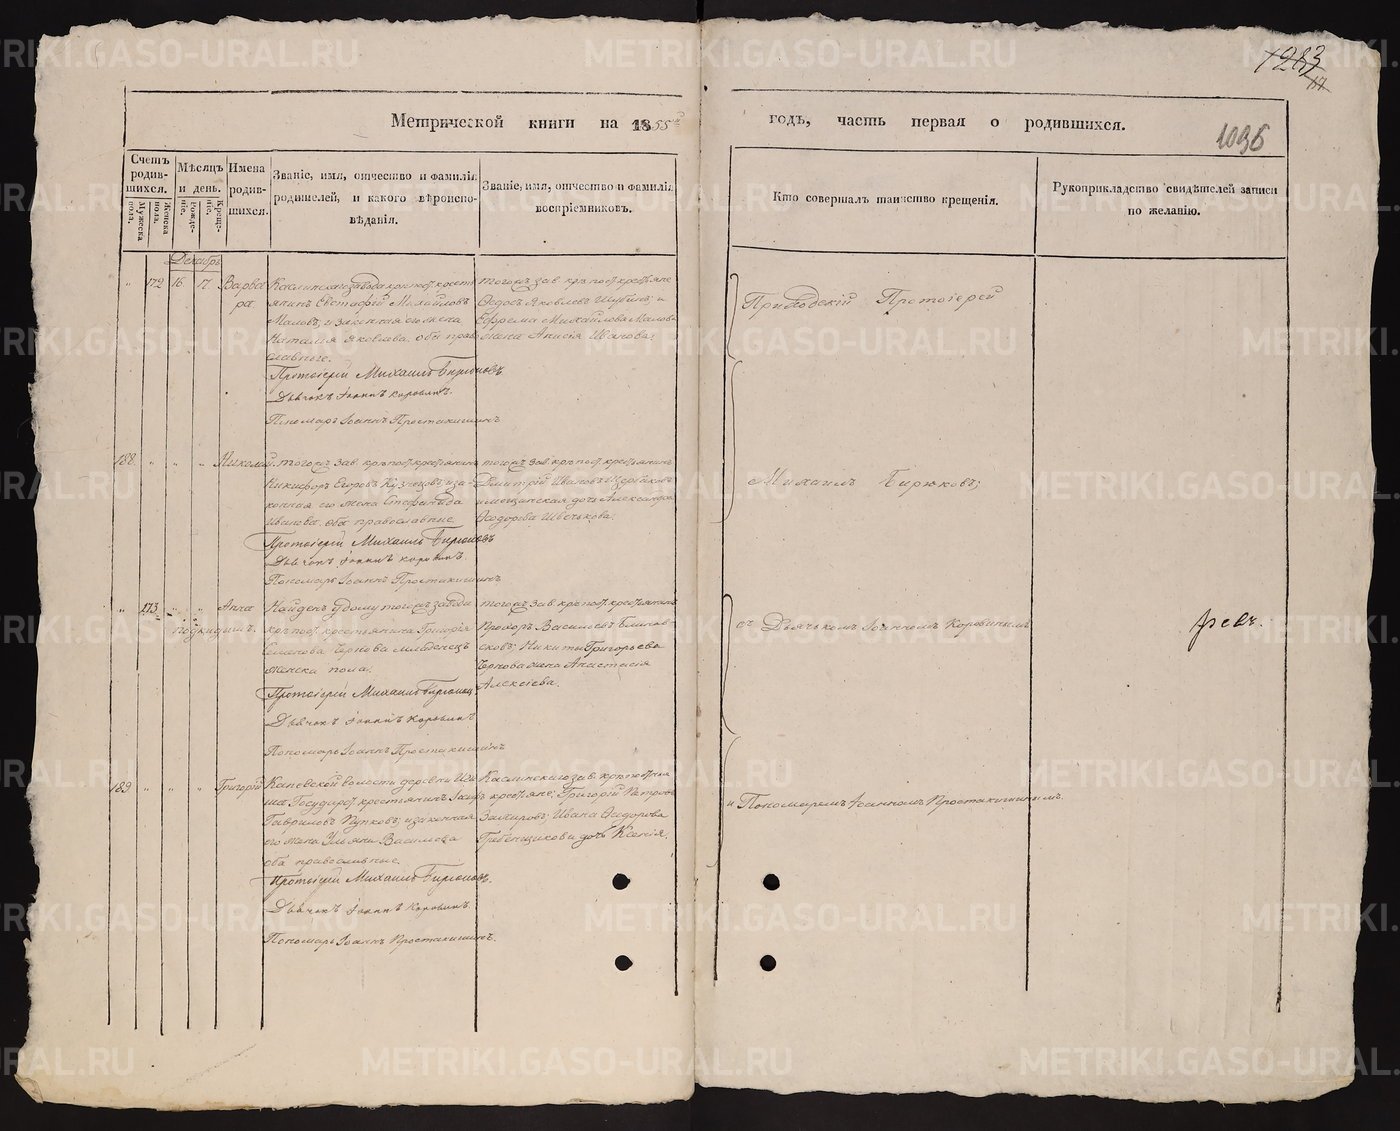 1283
17
1036
Метрической книги на 1855й
годъ, часть первая о родившихся.
Счетъ родив-шихся.
Мужеска пола.
Женска пола.
Мѣсяцъ и день.
Рожде-ніе.
Креще-ніе.
Имена родив-шихся.
Званіе, имя, отчество и фамилія родителей, и какого вѣроиспо-вѣданія.
Званіе, имя, отчество и фамилія воспріемниковъ.
Кто совершалъ таинство крещенія.
Рукоприкладство свидѣтелей записи по желанію.
Декабрь
" 172 16 17 Варва-
ра
Каслинскаго завода крѣпост. крест-
янинъ Евстафій Михайловъ
Маловъ, и законная его жена
Наталія Яковлева, оба право-
славные.
Протоіерей Михаилъ Бирюковъ
Дьячокъ Іоаннъ Коровинъ.
Пономарь Іоаннъ Простакишинъ
тогожъ зав. крѣпост. крестьяне
Ѳедоръ Яковлевъ Шубинъ; и
Ефрема Михайлова Малов-
жена Анисія Иванова.
188. " " " Николай
тогожъ зав. крѣпост. крестьянинъ
Никифоръ Егоровъ Кузнецовъ; и за-
конная его жена Стефанида
Иванова, оба православные.
Протоіерей Михаилъ Бирюковъ
Дьячокъ Іоаннъ Коровинъ.
Пономарь Іоаннъ Простакишинъ
тогожъ зав. крѣпост. крестьянинъ
Дмитрій Ивановъ
и мещанская дочь Александра
Ѳедорова Швенькова.
" 173 " " Анна
подкидышъ.
Найденъ у дому тогожъ завода
крѣпост. крестьянина Григорія
Семенова Чернова младенецъ
женска пола.
Протоіерей Михаилъ Бирюковъ
Дьячокъ Іоаннъ Коровинъ
Пономарь Іоаннъ Простакишинъ
тогожъ зав. крѣпост. крестьянинъ
Прохоръ Василіевъ Блинов-
сковъ; Никиты Григорьева
Чернова жена Анастасія
Алексіева.
189 " " " Григорій
волости деревни
Государст. крестьянинъ
Гавриловъ Пупковъ; и законная
его жена Ульяна Василіева
оба православные.
Протоіерей Михаилъ Бирюковъ.
Дьячокъ Іоаннъ Коровинъ.
Пономарь Іоаннъ Простакишинъ.
Каслинскаго зав. крѣпостные
крестьяне: Григорій Петровъ
Захировъ; Ивана Ѳедорова
Гребенщикова дочь Ксенія.
Приходскій Протоіерей
Михаилъ Бирюковъ;
съ Дьячькомъ Іоанномъ Коровинымъ
и Пономаремъ Іоанномъ Простакишинымъ.
METRIKI.GASO-URAL.RU